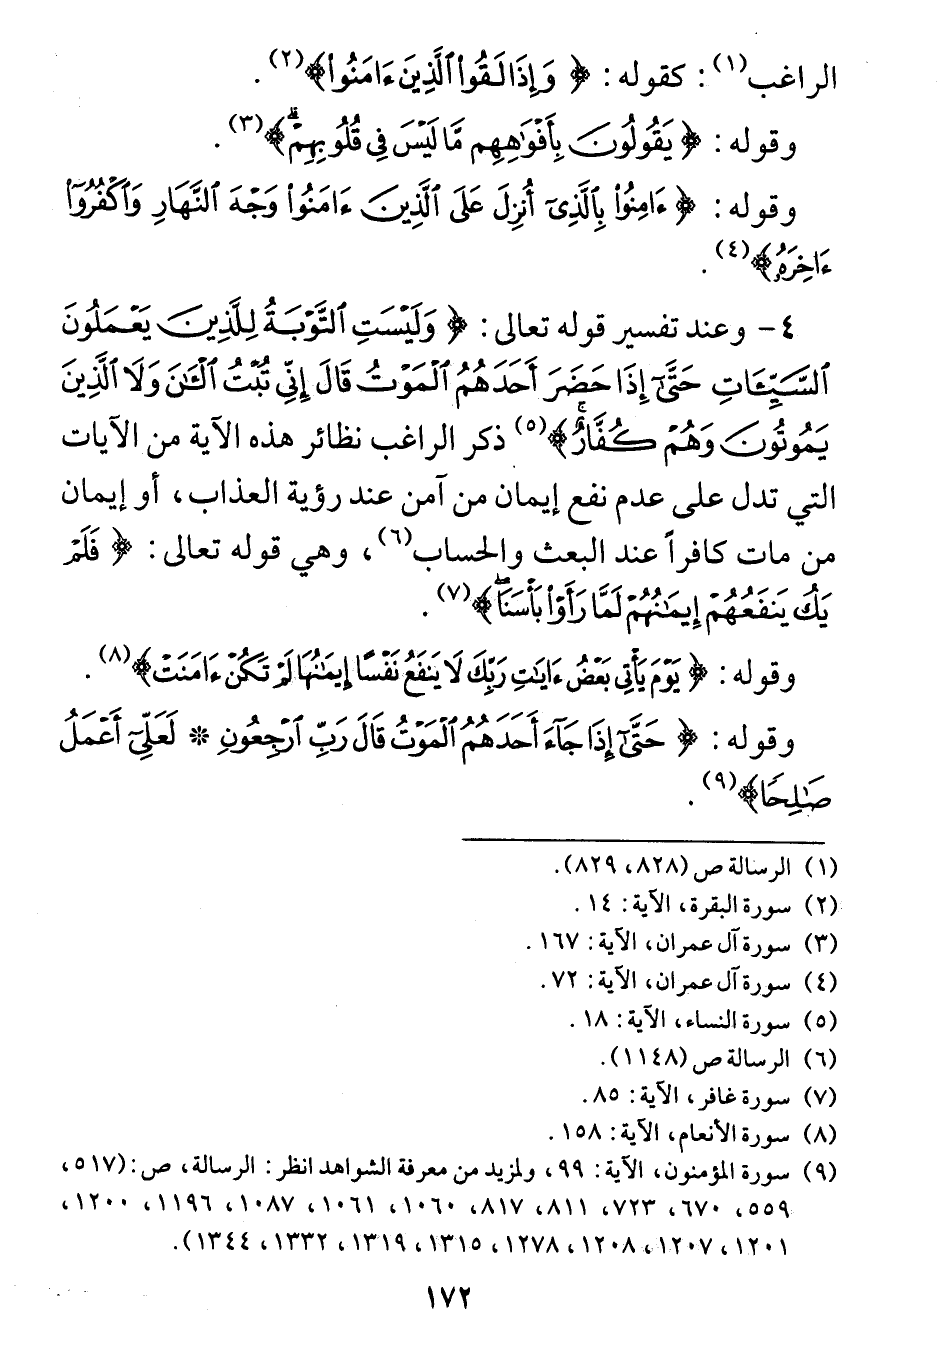 الراغب(١): كقوله: ﴿ وَإِذَا لَقُوا۟ ٱلَّذِينَ ءَامَنُوا۟﴾(٢).
وقوله: ﴿ يَقُولُونَ بِأَفْوَٰهِهِم مَّا لَيْسَ فِى قُلُوبِهِمْ ۗ﴾(٣).
وقوله: ﴿ ءَامِنُوا۟ بِٱلَّذِىٓ أُنزِلَ عَلَى ٱلَّذِينَ ءَامَنُوا۟ وَجْهَ ٱلنَّهَارِ وَٱكْفُرُوٓا۟
ءَاخِرَهُۥ﴾(٤).
٤- وعند تفسير قوله تعالى: ﴿ وَلَيْسَتِ ٱلتَّوْبَةُ لِلَّذِينَ يَعْمَلُونَ
ٱلسَّيِّـَٔاتِ حَتَّىٰٓ إِذَا حَضَرَ أَحَدَهُمُ ٱلْمَوْتُ قَالَ إِنِّى تُبْتُ ٱلْـَٰٔنَ وَلَا ٱلَّذِينَ
يَمُوتُونَ وَهُمْ كُفَّارٌ ۚ﴾(٥) ذكر الراغب نظائر هذه الآية من الآيات
التي تدل على عدم نفع إيمان من آمن عند رؤية العذاب، أو إيمان
من مات كافراً عند البعث والحساب(٦)، وهي قوله تعالى: ﴿ فَلَمْ
يَكُ يَنفَعُهُمْ إِيمَٰنُهُمْ لَمَّا رَأَوْا۟ بَأْسَنَا ۖ﴾(٧).
وقوله: ﴿ يَوْمَ يَأْتِى بَعْضُ ءَايَٰتِ رَبِّكَ لَا يَنفَعُ نَفْسًا إِيمَٰنُهَا لَمْ تَكُنْ ءَامَنَتْ﴾(٨).
وقوله: ﴿ حَتَّىٰٓ إِذَا جَآءَ أَحَدَهُمُ ٱلْمَوْتُ قَالَ رَبِّ ٱرْجِعُونِ * لَعَلِّىٓ أَعْمَلُ
صَٰلِحًا﴾(٩).
(١) الرسالة ص (٨٢٨، ٨٢٩).
(٢) سورة البقرة، الآية: ١٤.
(٣) سورة آل عمران، الآية: ١٦٧.
(٤) سورة آل عمران، الآية: ٧٢.
(٥) سورة النساء، الآية: ١٨.
(٦) الرسالة ص (١١٤٨).
(٧) سورة غافر، الآية: ٨٥.
(٨) سورة الأنعام، الآية: ١٥٨.
(٩) سورة المؤمنون، الآية: ٩٩، ولمزيد من معرفة الشواهد انظر: الرسالة، ص: (٥١٧،
٥٥٩، ٦٧٠، ٧٢٣، ٨١١، ٨١٧، ١٠٦٠، ١٠٦١، ١٠٨٧، ١١٩٦، ١٢٠٠،
١٢٠١، ١٢٠٧، ١٢٠٨، ١٢٧٨، ١٣١٥، ١٣١٩، ١٣٣٢، ١٣٤٤).
١٧٢